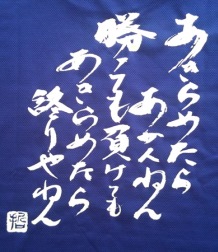 あきらめたら
あかんねん
勝っても負けても
あきらめたら
終りやねん
哲